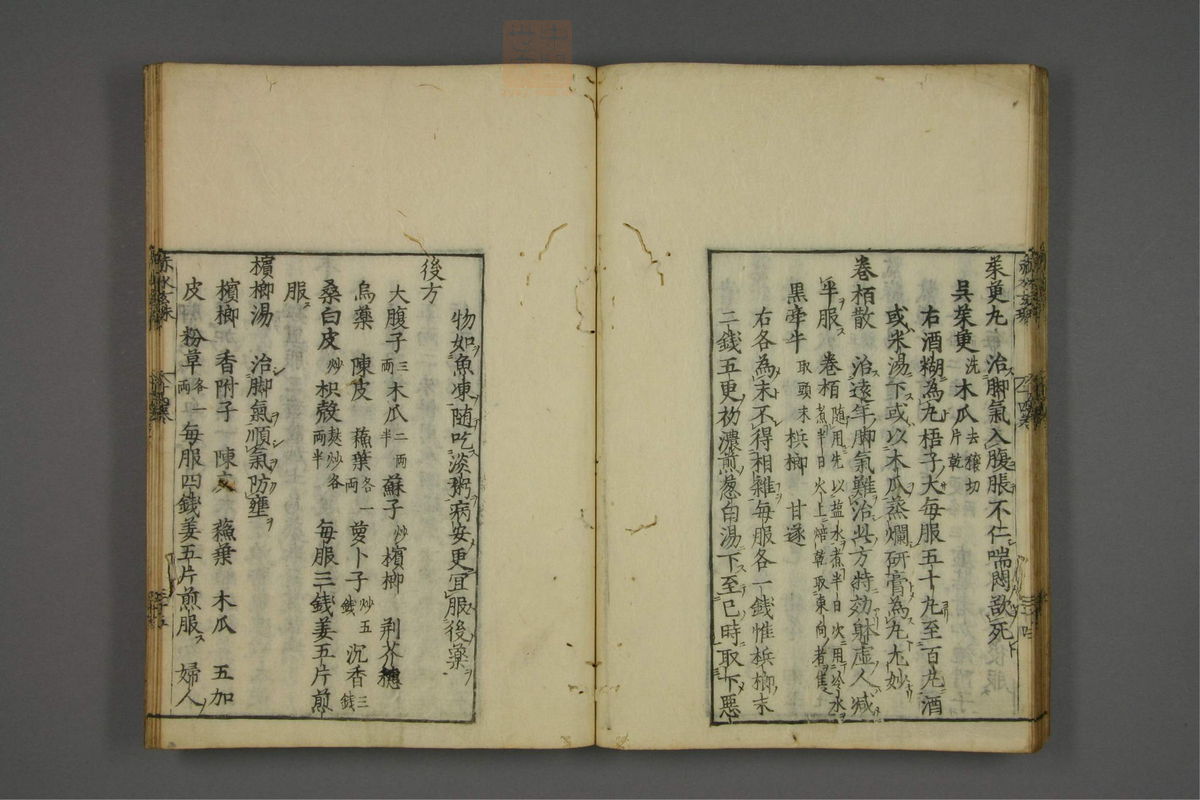 茱萸丸 治脚氣入腹脹不仁喘悶欲死
吳茱萸洗 木瓜去穰切片乾
右酒糊為丸梧子大每服五十丸至百丸酒
或米湯下或以木瓜蒸爛研膏為丸尤妙
卷栢散 治遠年脚氣難治此方特効躰虛人减
半服 卷栢随用先以盐水煮半日次用冷水煮半日火上焙乾取東向者佳
黒牽牛取頭末 梹榔 甘遂
右各為末不得相雜每服各一錢惟梹榔末
二錢五更初濃煎葱白湯下至巳時取下惡
物如魚凍随吃淡粥病安更宜服後藥
後方
大腹子三兩 木瓜二兩半 蘇子炒 檳榔 荆芥穗
烏藥 陳皮 蘓葉各一兩 萝卜子炒五錢 沉香三錢
桑白皮炒 枳殼麩炒各兩半 每服三錢姜五片煎
服
檳榔湯 治脚氣順氣防壅
檳榔 香附子 陳皮 蘓葉 木瓜 五加
皮 粉草各一兩 每服四錢姜五片煎服 婦人